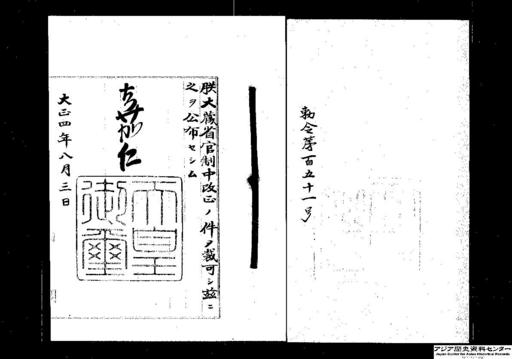 勅令第百五十一号
朕大蔵省官制中改正ノ件ヲ裁可シ玆ニ
之ヲ公布セシム
嘉仁
天皇
御璽
大正四年八月三日
アジア歴史資料センター
Japan Center for Asian Historical Records